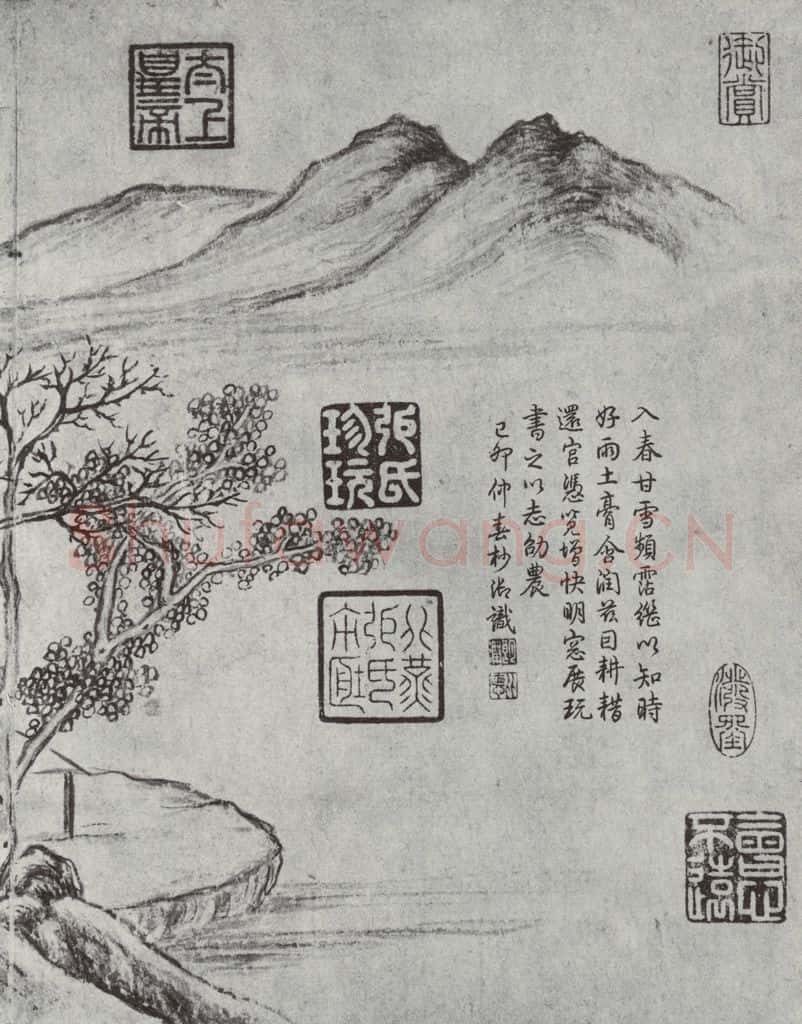 御賞
太上皇帝
入春甘雪頻霑繼以知時
好雨土膏含潤茲日耕耤
還宮憑覽增快明窓展玩
書之以志劭農
己卯仲春杪御識
張氏珍玩
會心不遠
Shufawang.CN